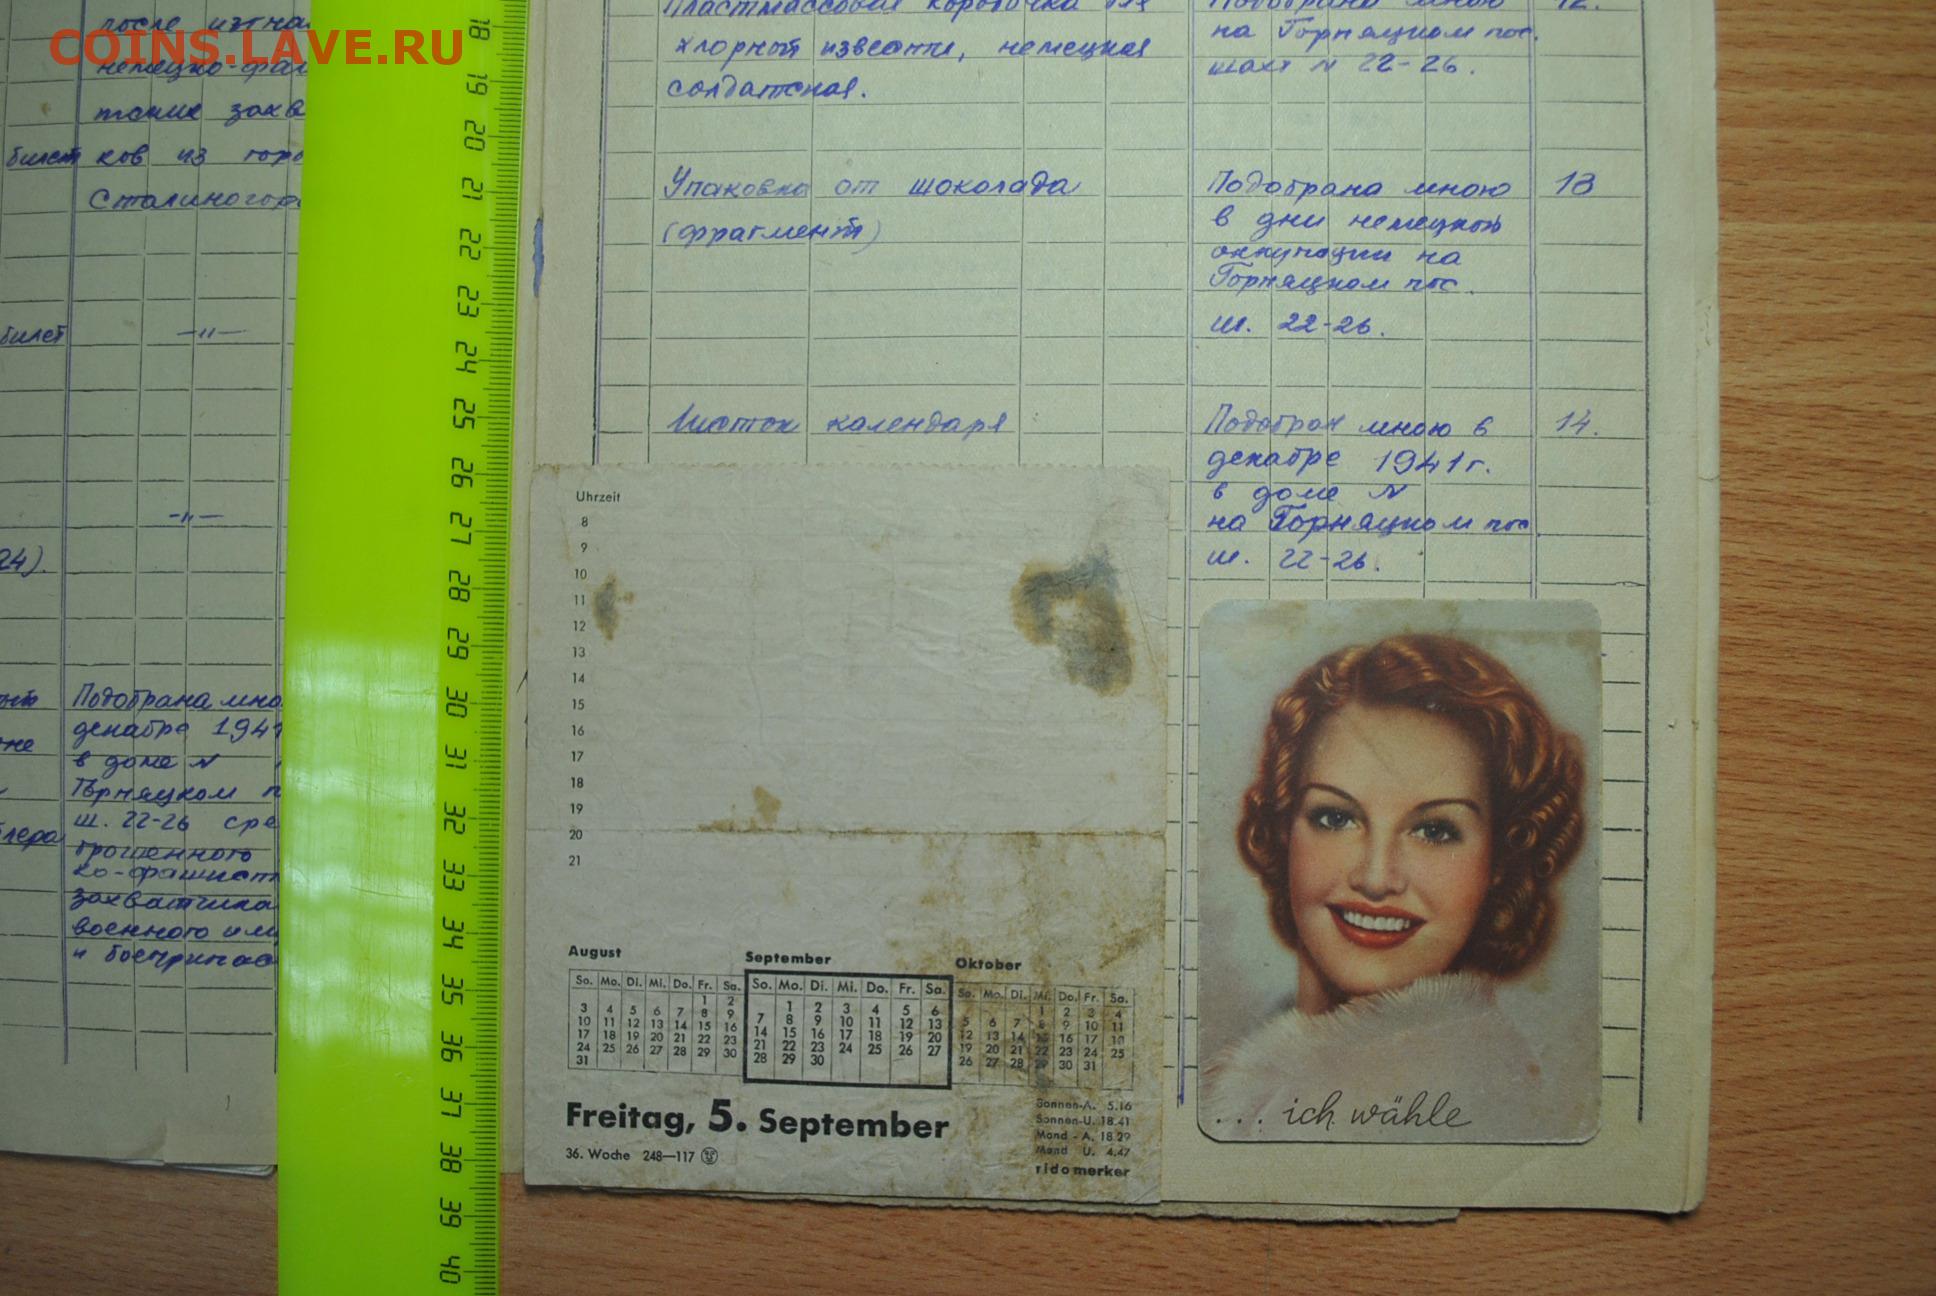 COINS.LAVE.RU
после изгна
немецко-фаш
тских захв
билет
ков из горо
Сталиногор
билет
—"—
—"—
24).
Подобрана мно
декабре 1941
в доме N
Горняцком п
ш. 22-26 сре
брошенного
ко-фашист
захватчика
военного
и боеприпас
18
19
20
21
22
23
24
25
26
27
28
29
30
31
32
33
34
35
36
37
38
39
40
Пластмассовая коробочка для
хлорной извести, немецкая
солдатская.
Подобрана мною
на Горняцком пос.
шахт N 22-26.
12.
Упаковка от шоколада
(фрагмент)
Подобрана мною
в дни немецкой
оккупации на
Горняцком пос.
ш. 22-26.
13
Листок календаря
Подобран мною в
декабре 1941 г.
в доме N
на Горняцком пос.
ш. 22-26.
14.
Uhrzeit
8
9
10
11
12
13
14
15
16
17
18
19
20
21
August
So. Mo. Di. Mi. Do. Fr. Sa.
1 2
3 4 5 6 7 8 9
10 11 12 13 14 15 16
17 18 19 20 21 22 23
24 25 26 27 28 29 30
31
September
So. Mo. Di. Mi. Do. Fr. Sa.
1 2 3 4 5 6
7 8 9 10 11 12 13
14 15 16 17 18 19 20
21 22 23 24 25 26 27
28 29 30
Oktober
So. Mo. Di. Mi. Do. Fr. Sa.
1 2 3 4
5 6 7 8 9 10 11
12 13 14 15 16 17 18
19 20 21 22 23 24 25
26 27 28 29 30 31
Freitag, 5. September
36. Woche 248—117
Sonnen-A. 5.16
Sonnen-U. 18.41
Mond - A. 18.29
Mond U. 4.47
ridomerker
... ich wähle